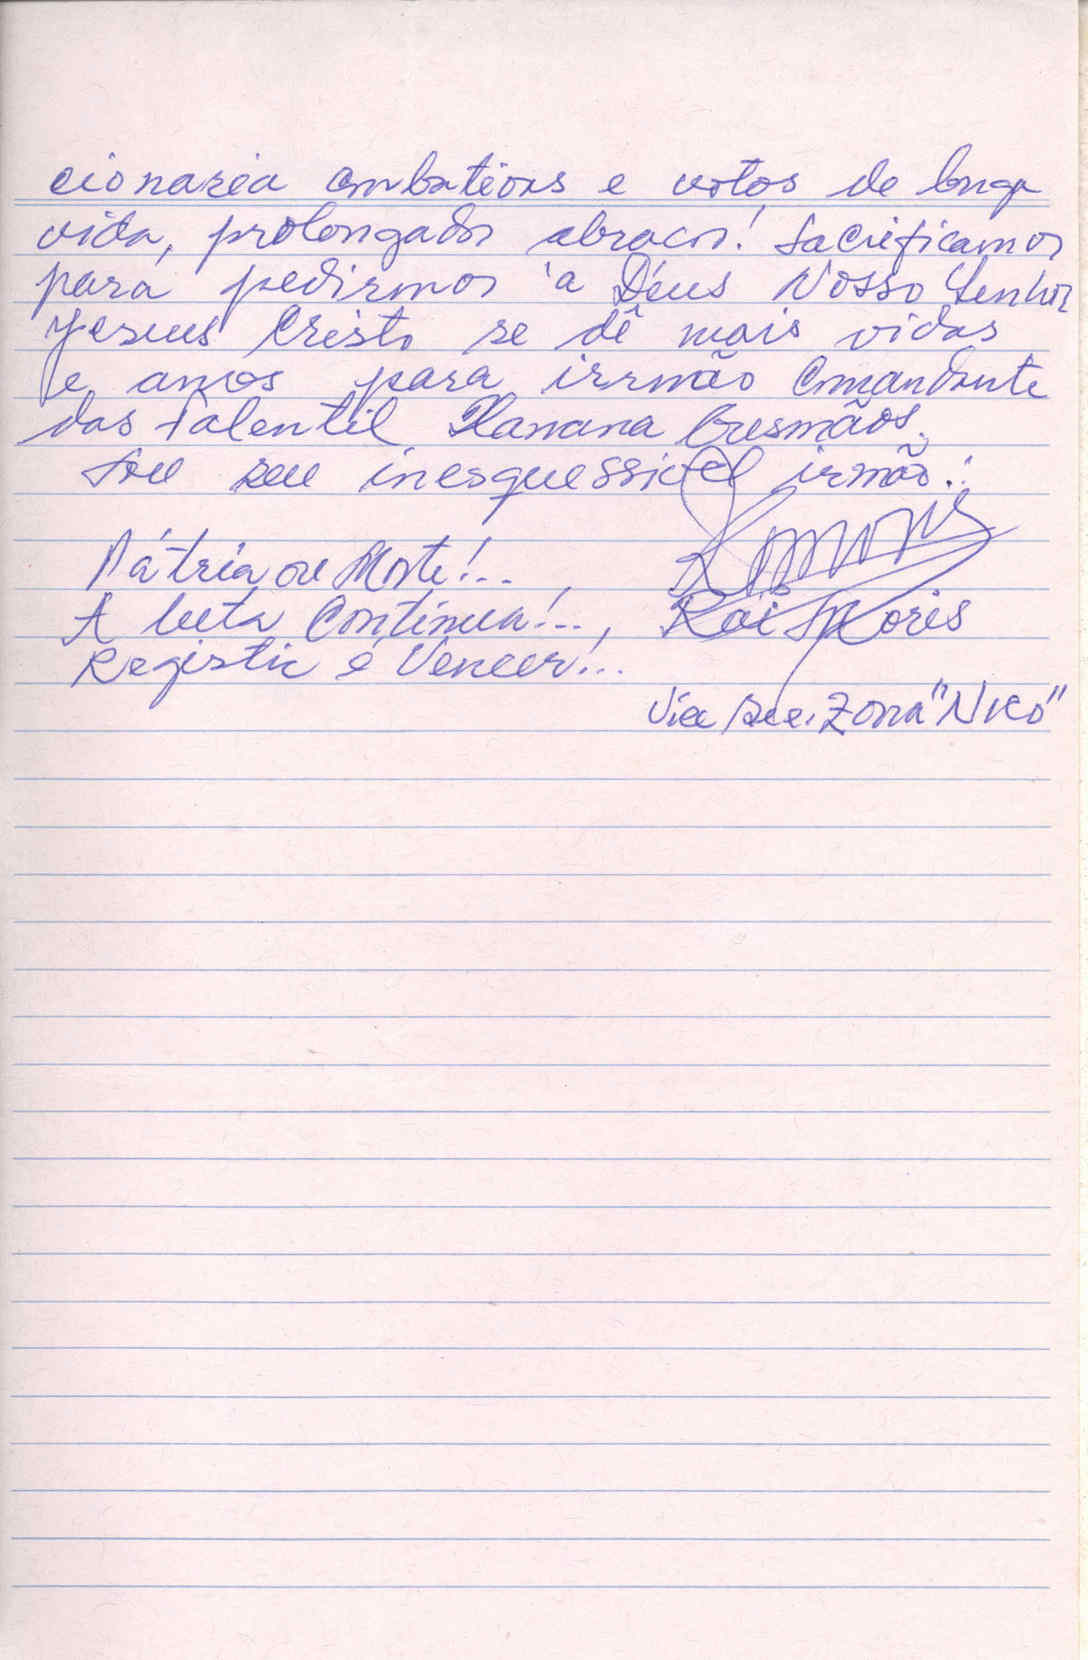 cionaria combativas e votos de longa
vida, prolongados abracos! Sacrificamos
para pedirmos 'a Déus Nosso Senhor
Jesus Cristo se dê mais vidas
e anos para irmão Comandante
das Falentil Xanana Gusmãos.
Sou seu inesquessivel irmão:
Pátria ou Morte!...
A luta Continua!...,
Registir é Vencer!...
Roi Moris
Vice Sec. Zona "NKO"